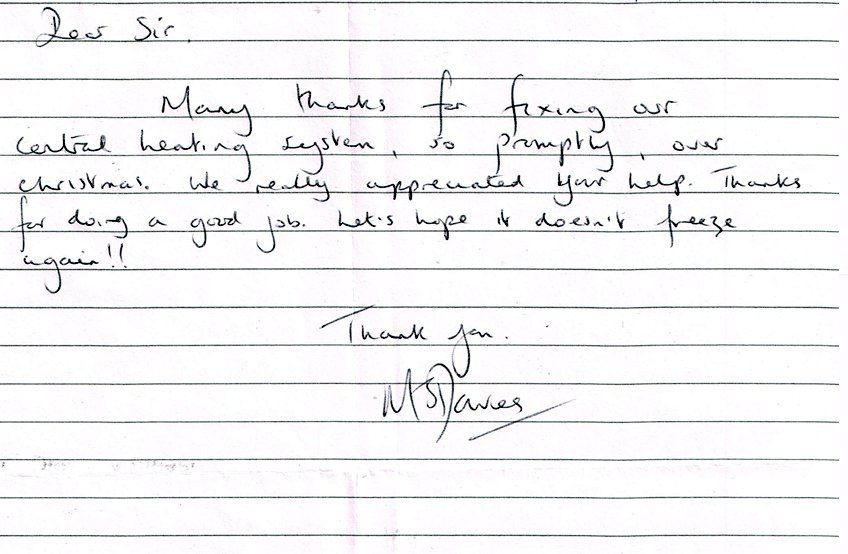 Dear Sir.
Many thanks for fixing our
central heating system, so promptly, over
christmas. We really appreciated your help. Thanks
for doing a good job. Let's hope it doesn't freeze
again!!
Thank you.
M S Davies